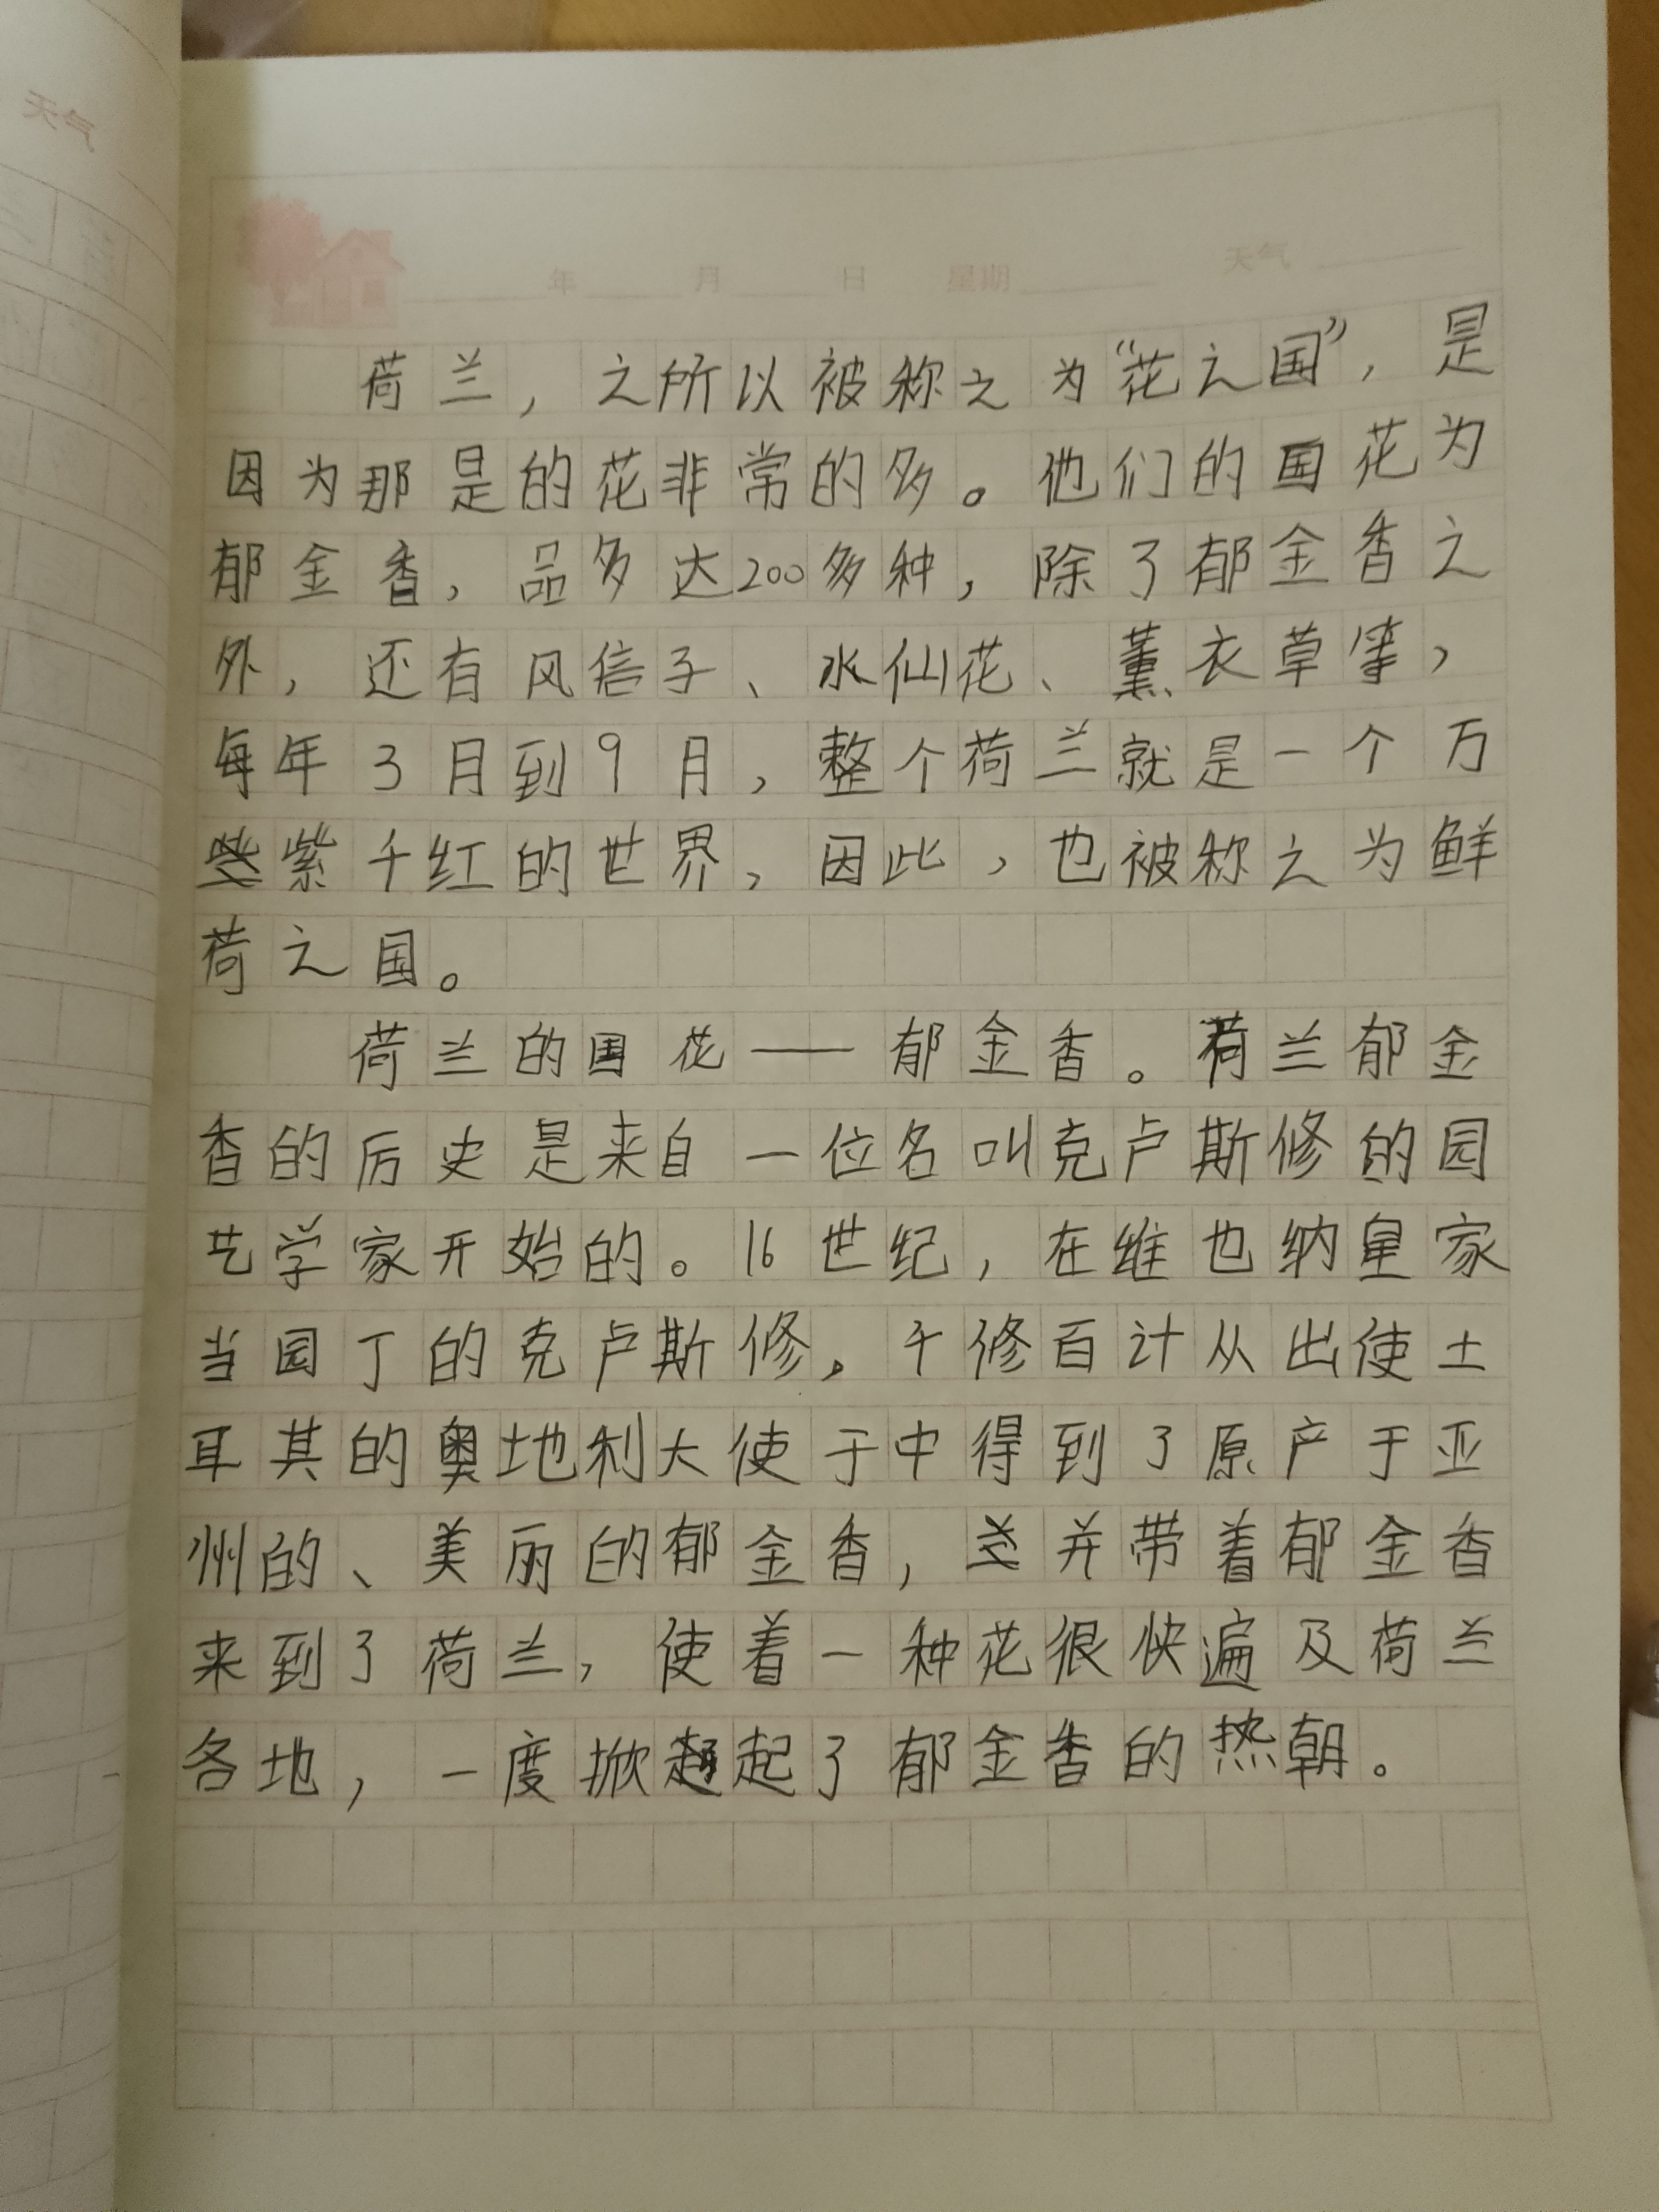 天气
年 月 日 星期 天气
荷兰，之所以被称之为“花之国”，是
因为那是的花非常的多。他们的国花为
郁金香，品多达200多种，除了郁金香之
外，还有风信子、水仙花、薰衣草等，
每年3月到9月，整个荷兰就是一个万
紫千红的世界，因此，也被称之为鲜
荷之国。
荷兰的国花——郁金香。荷兰郁金
香的历史是来自一位名叫克卢斯修的园
艺学家开始的。16世纪，在维也纳皇家
当园丁的克卢斯修，千修百计从出使土
耳其的奥地利大使于中得到了原产于亚
州的、美丽的郁金香，并带着郁金香
来到了荷兰，使着一种花很快遍及荷兰
各地，一度掀起了郁金香的热朝。